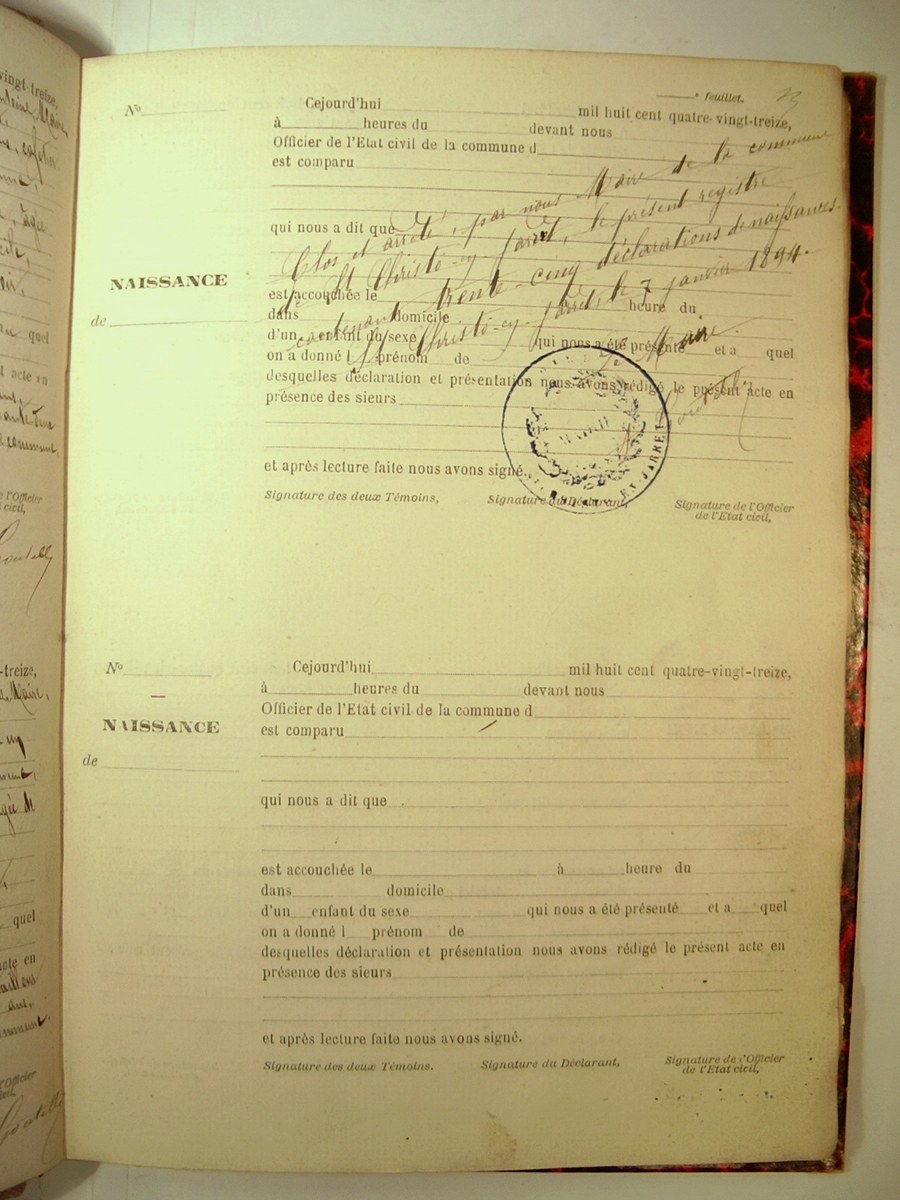 ᵉ feuillet. 23
Nº
Cejourd'hui mil huit cent quatre-vingt-treize,
à heures du devant nous
Officier de l'Etat civil de la commune d
est comparu
qui nous a dit que
Clos et arrêté, par nous Maire de la commune
de St Christô-en-Jarret, le présent registre
contenant trente-cinq déclarations de naissances.
St Christô-en-Jarret, le 7 janvier 1894.
Le Maire.
NAISSANCE
de
est accouchée le heure du
dans domicile
d'un enfant du sexe qui nous a été présenté et a quel
on a donné l prénom de
desquelles déclaration et présentation nous avons rédigé le présent acte en
présence des sieurs
MAIRIE
EN-JARRET
et après lecture faite nous avons signé.
Signature des deux Témoins, Signature du Déclarant, Signature de l'Officier
de l'Etat civil,
Nº
Cejourd'hui mil huit cent quatre-vingt-treize,
à heures du devant nous
Officier de l'Etat civil de la commune d
NAISSANCE
est comparu
de
qui nous a dit que
est accouchée le à heure du
dans domicile
d'un enfant du sexe qui nous a été présenté et a quel
on a donné l prénom de
desquelles déclaration et présentation nous avons rédigé le présent acte en
présence des sieurs
et après lecture faite nous avons signé.
Signature des deux Témoins. Signature du Déclarant, Signature de l'Officier
de l'Etat civil,